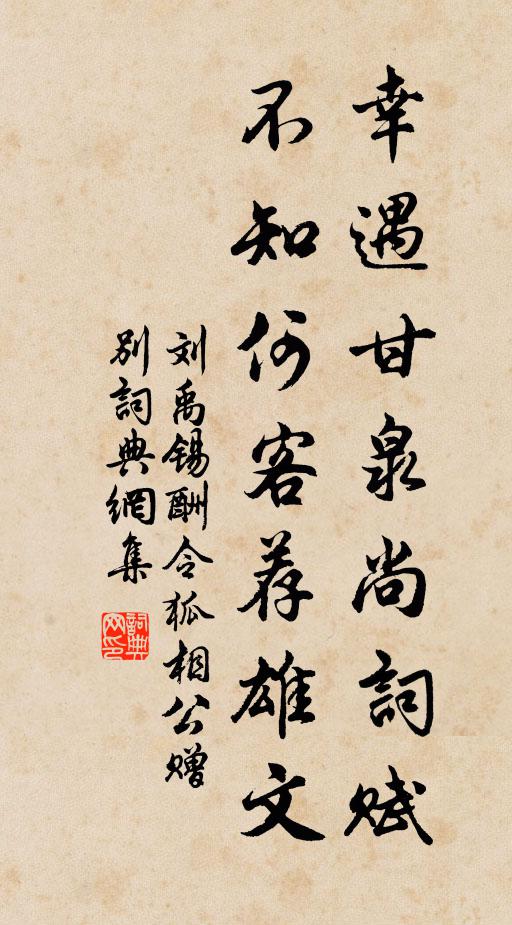 幸遇甘泉尚詞赋
不知何客荐雄文
刘禹锡酬令狐相公赠
别詞典網集
詞典网印